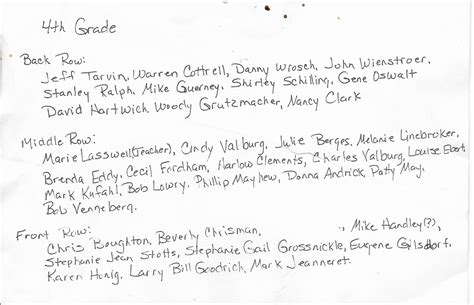 4th Grade
Back Row:
Jeff Tarvin, Warren Cottrell, Danny Wrosch, John Wienstroer,
Stanley Ralph, Mike Guerney, Shirley Schilling, Gene Oswalt
David Hartwich Woody Grutzmacher, Nancy Clark
Middle Row:
Marie Lasswell (Teacher), Cindy Valburg, Julie Berges, Melanie Linebroker,
Brenda Eddy, Cecil Fordham, Harlow Clements, Charles Valburg, Louise Ebert,
Mark Kufahl, Bob Lowry, Phillip Mayhew, Donna Andrick, Patty May,
Bob Venneberg.
Front Row:
Chris Boughton, Beverly Chrisman, , Mike Handley(?),
Stephanie Jean Stotts, Stephanie Gail Grossnickle, Eugene Gilsdorf,
Karen Honig, Larry Bill Goodrich, Mark Jeanneret.